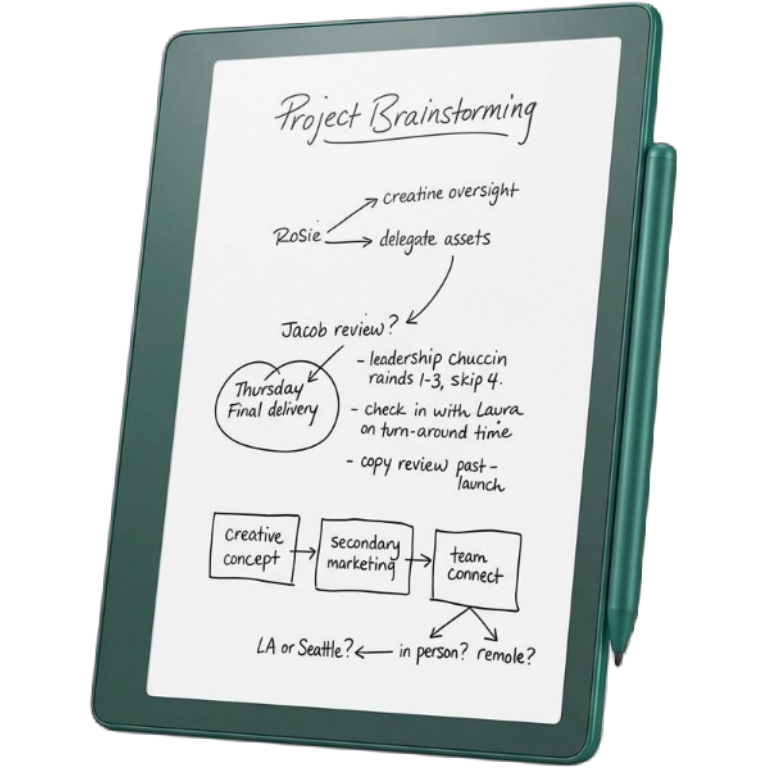 Project Brainstorming
creatine oversight
Rosie
delegate assets
Jacob review?
- leadership chuccin
rainds 1-3, skip 4.
Thursday
Final delivery
- check in with Laura
on turn-around time
- copy review past-
launch
creative
concept
secondary
marketing
team
connect
LA or Seattle?
in person?
remole?